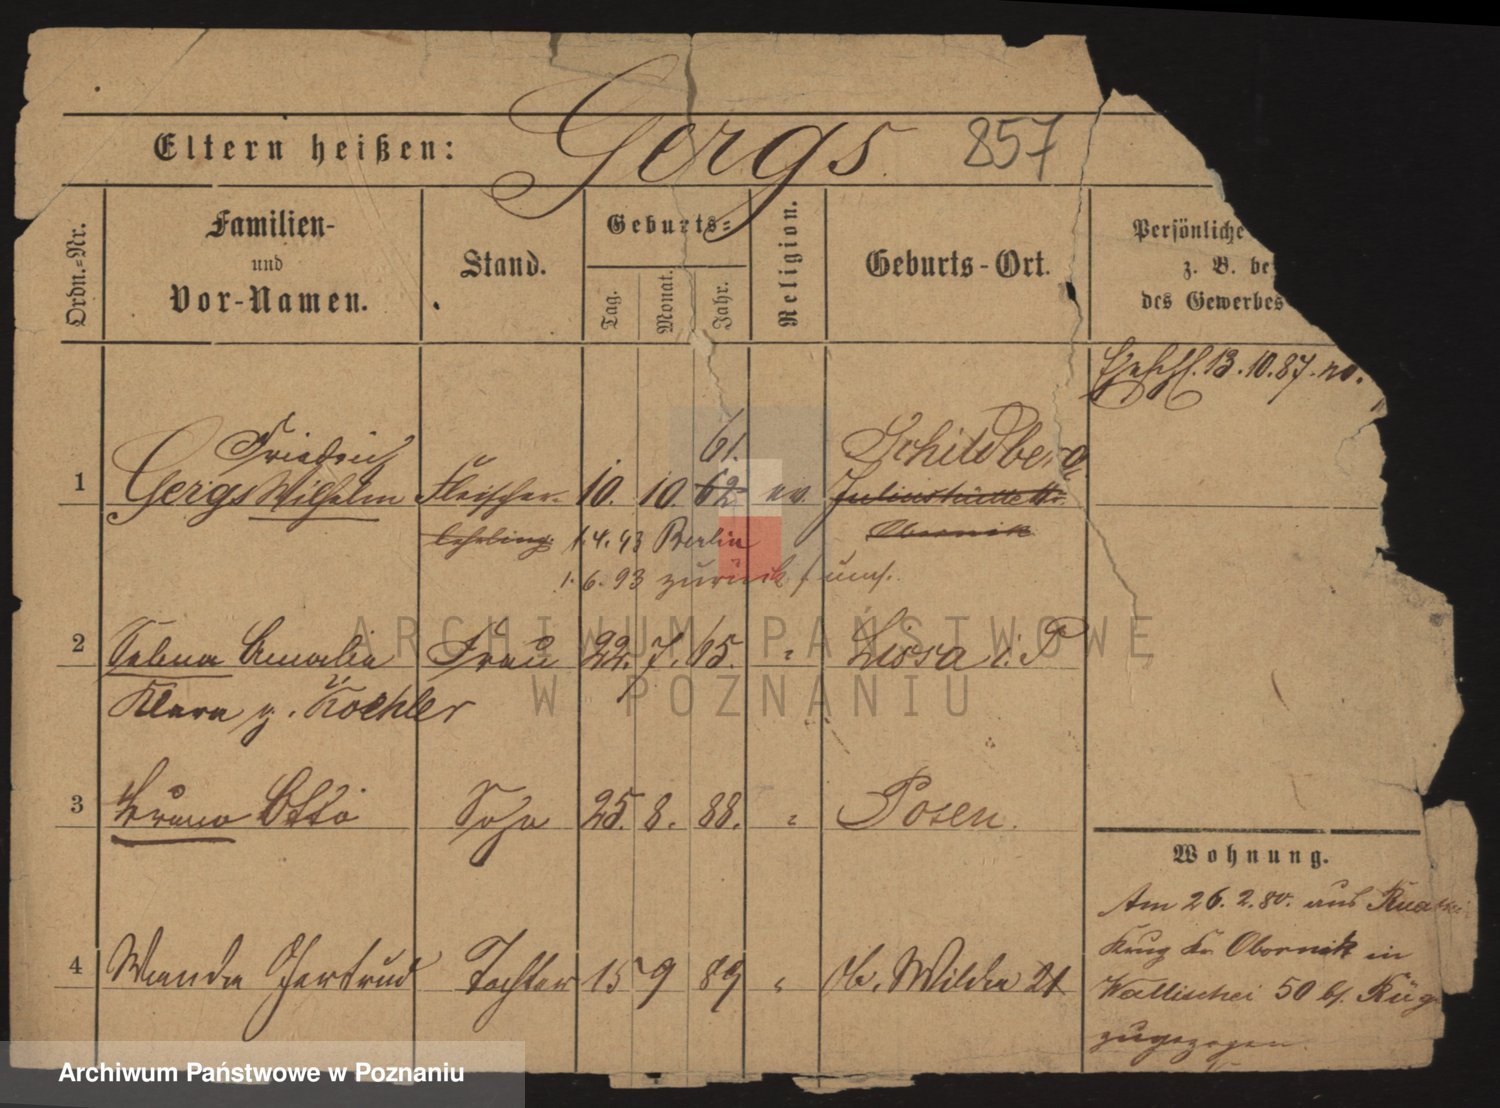 Eltern heißen: Gergs. 857
Ordn.=Nr.
Familien-
und
Vor-Namen.
Stand.
Geburts=
Tag.
Monat.
Jahr.
Religion.
Geburts-Ort.
Persönliche
z. B. be
des Gewerbes
13.10.87.
Friedrich 61. Schildberg
1 Gergs Wilhelm Fleischer- 10. 10. 62 ev.
lehrling 1.4.93 Berlin Obornik
1.6.93 zurück
2 Selma Amalie Frau 22. 7. 65. " Lissa i. P
Klara g. Koehler
3 Bruno Otto Sohn 25. 8. 88. " Posen.
4 Wanda Gertrud Tochter 15 9 89 " Ob. Wilda 21
Wohnung.
Am 26.2.80. aus
Krug Kr. Obornik in
Wallischei 50 bf.
zugezogen.
ARCHIWUM PAŃSTWOWE
W POZNANIU
Archiwum Państwowe w Poznaniu